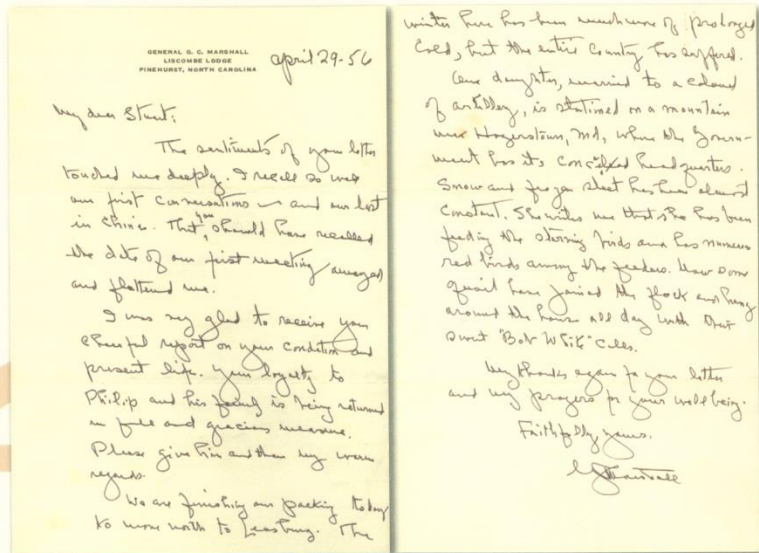 GENERAL G. C. MARSHALL
LISCOMBE LODGE
PINEHURST, NORTH CAROLINA
April 29-56
My dear Stuart;
The sentiments of your letter
touched me deeply. I recall so well
our first conversations and our last
in China. That you should have recalled
the date of our first meeting amazed
and flattered me.
I was very glad to receive your
cheerful report on your condition and
present life. Your loyalty to
Philip and his family is being returned
in full and gracious measure.
Please give him and them my warm
regards.
We are finishing our packing today
to move north to Leesburg. The
winter here has been much more of prolonged
cold, but the entire country has suffered.
One daughter, married to a colonel
of artillery, is stationed on a mountain
near Hagerstown, Md, where the Govern-
ment has its headquarters.
Snow and frozen sleet has been almost
constant. She writes me that she has been
feeding the starving birds and has numerous
red birds among the feeders. Now some
quail have joined the flock and hang
around the house all day with their
sweet "Bob White" calls.
My thanks again for your letter
and my prayers for your well being.
Faithfully yours.
G. C. Marshall